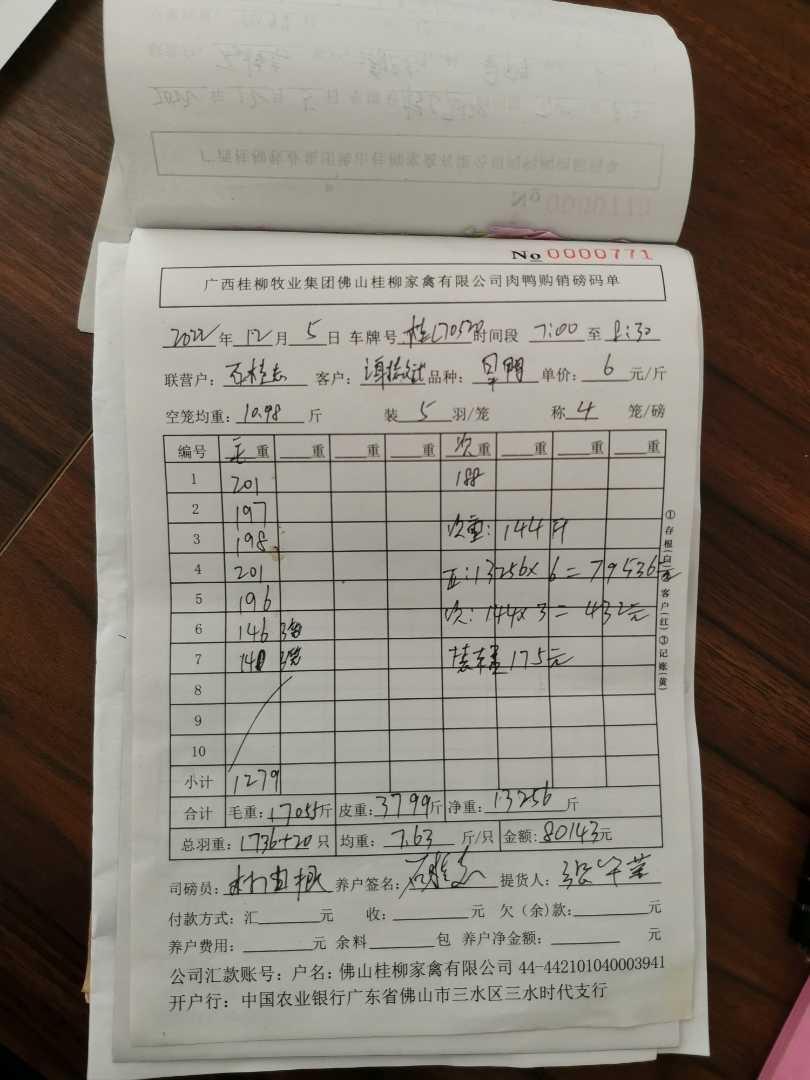 No 0000771
广西桂柳牧业集团佛山桂柳家禽有限公司肉鸭购销磅码单
2022年12月5日 车牌号 时间段 7:00 至 8:30
联营户: 石桂志 客户: 品种: 旱鸭 单价: 6 元/斤
空笼均重: 10.98 斤 装 5 羽/笼 称 4 笼/磅
编号 毛重 重 重 重 次重 重 重 重
1 201 188
2 197
3 198 次重: 144斤
4 201 正: 13256×6=79536元
5 196 次: 144×3=432元
6 146 3笼
7 140 3笼 装车费175元
8
9
10
小计 1279
合计 毛重: 17055斤 皮重: 3799斤 净重: 13256斤
总羽重: 1736+20 只 均重: 7.63 斤/只 金额: 80143元
司磅员: 养户签名: 石桂志 提货人:
付款方式: 汇 元 收: 元 欠(余)款: 元
养户费用: 元 余料 包 养户净金额: 元
公司汇款账号: 户名: 佛山桂柳家禽有限公司 44-442101040003941
开户行: 中国农业银行广东省佛山市三水区三水时代支行
①存根(白) ②客户(红) ③记账(黄)